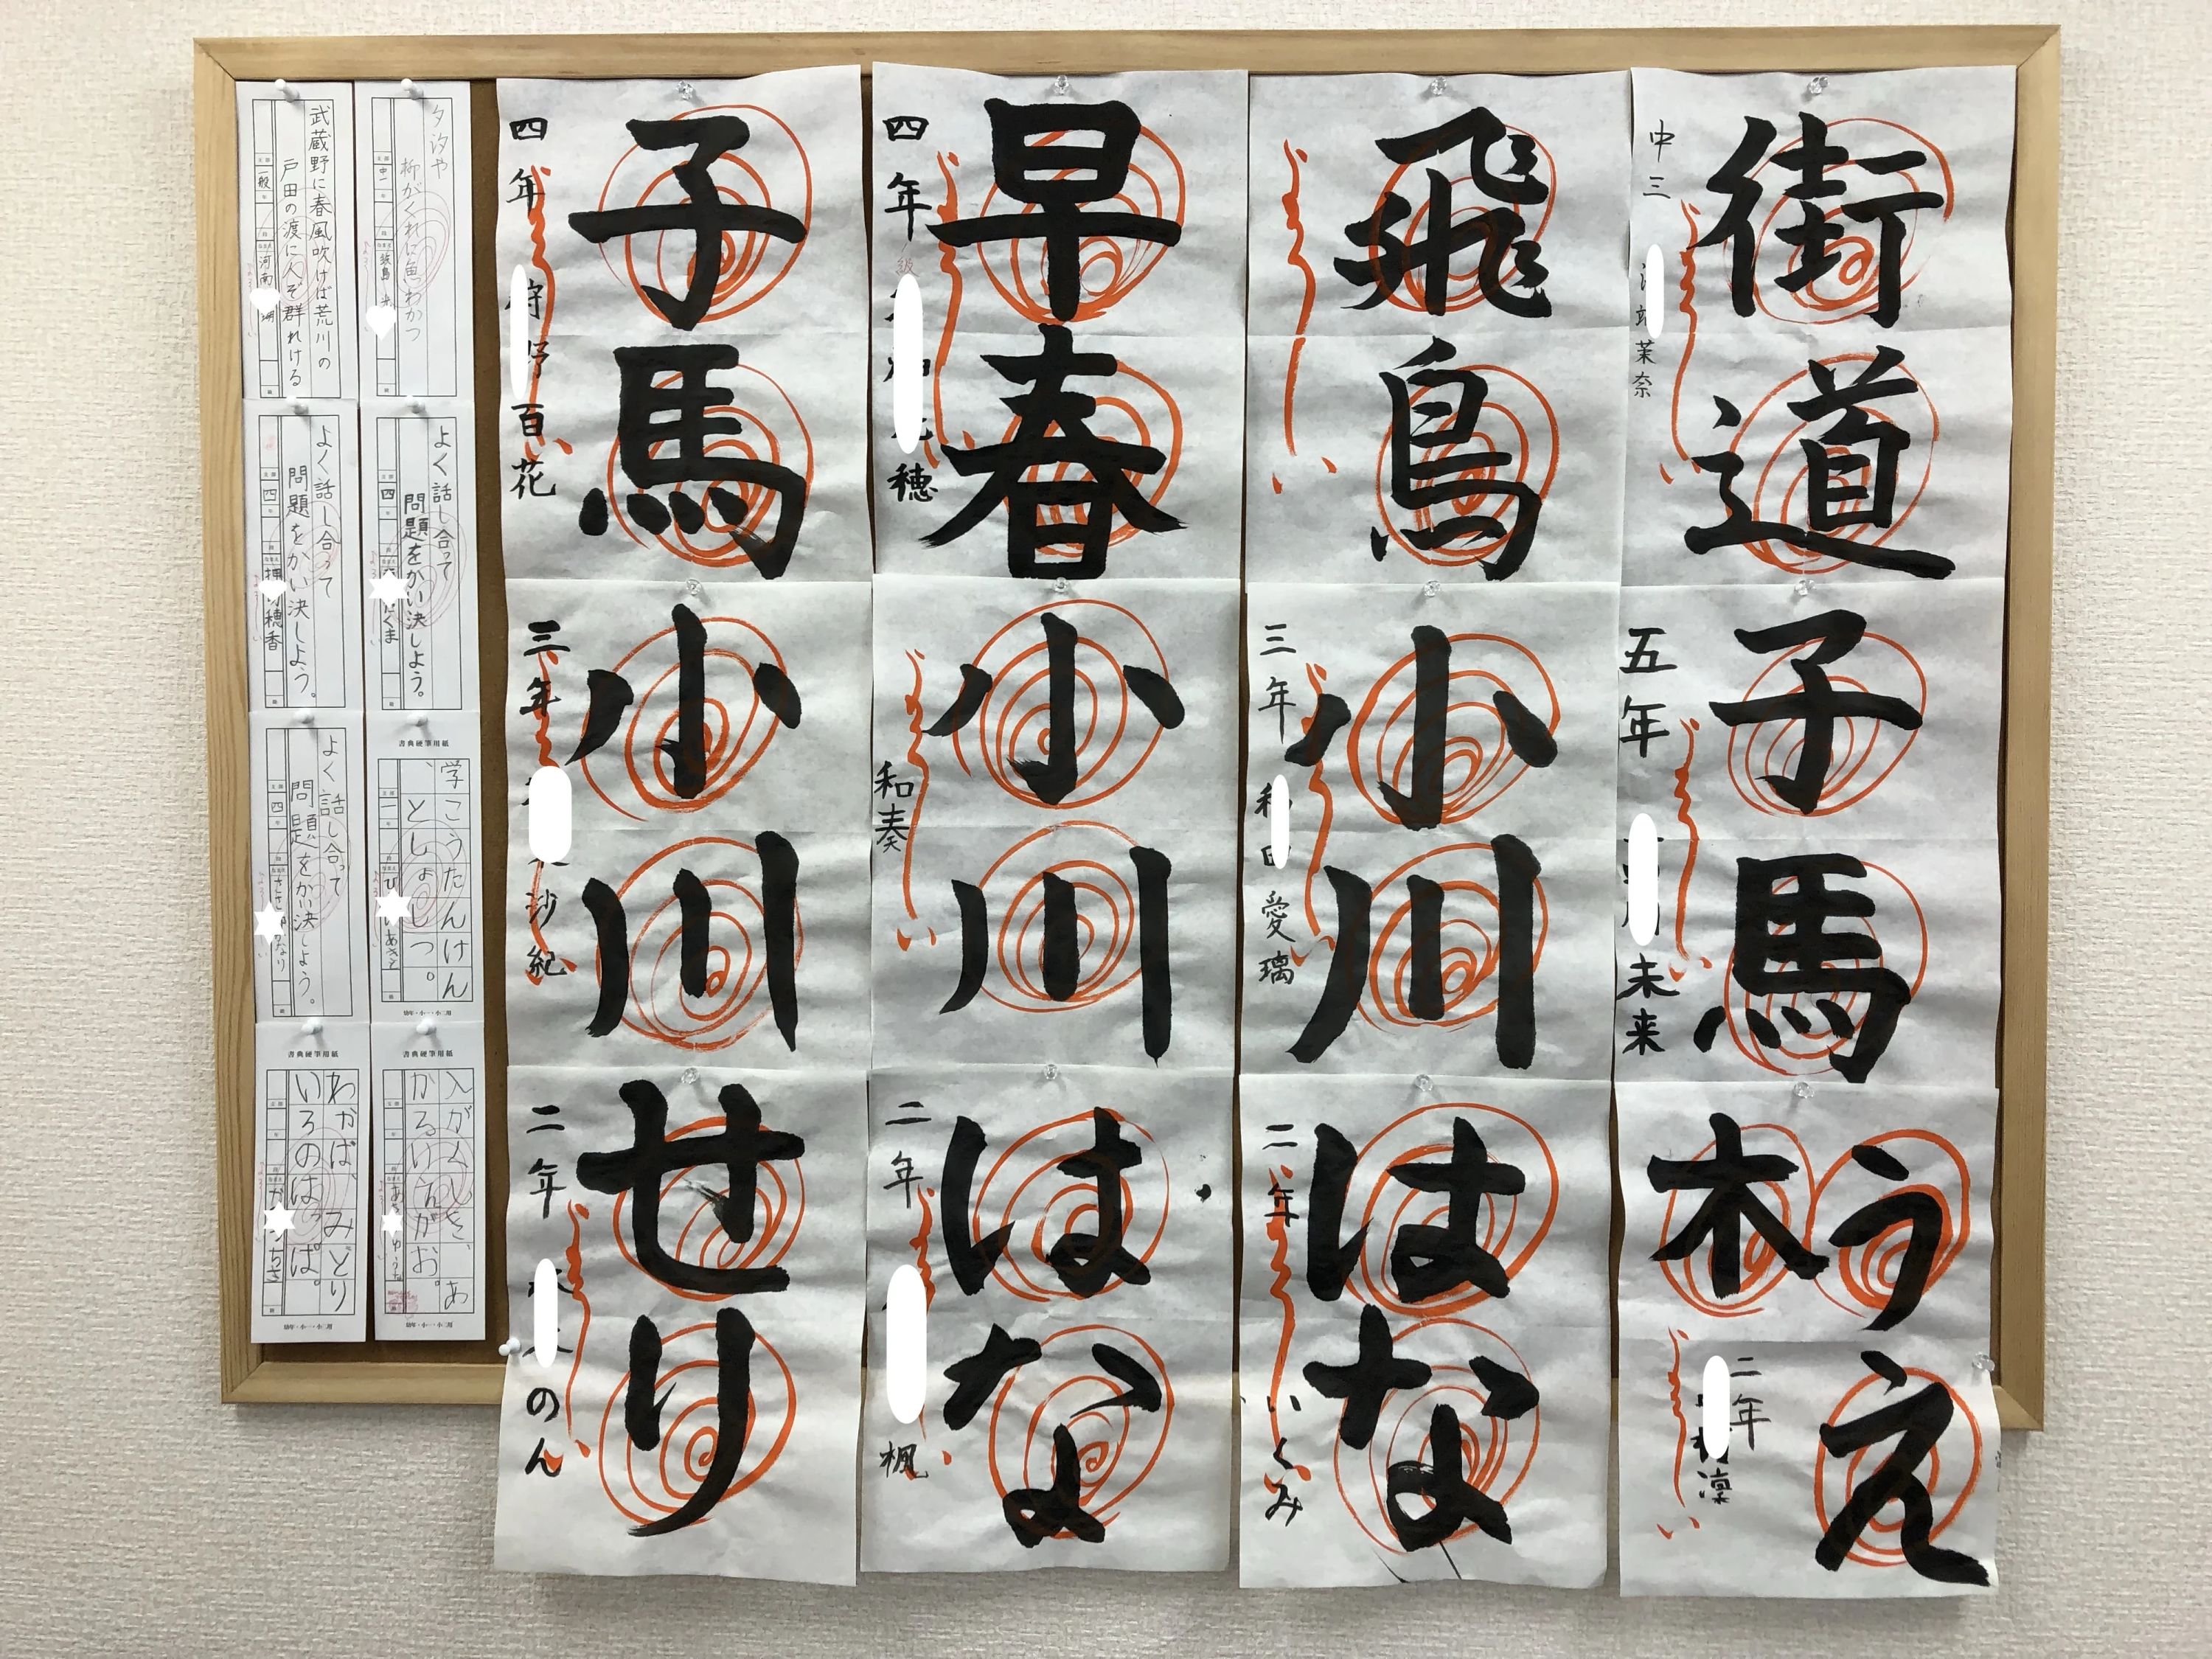 街道
中三
茉奈
飛鳥
早春
四年
穂
子馬
四年
百花
子馬
五年
未来
小川
三年
愛璃
小川
和奏
小川
三年
沙紀
うえ
木
二年
凛
はな
二年
いくみ
はな
二年
楓
せり
二年
のん
夕汐や
柳がくれに魚わかつ
中一
武蔵野に春風吹けば荒川の
戸田の渡に人ぞ群れける
一般
河南
よく話し合って
問題をかい決しよう。
四
くま
よく話し合って
問題をかい決しよう。
四
穂香
書典硬筆用紙
学こうたんけん
、としょしつ。
一
あさと
幼年・小一・小二用
よく話し合って
問題をかい決しよう。
四
なり
書典硬筆用紙
入がくしき、あ
かるいえがお。
幼年・小一・小二用
書典硬筆用紙
わかば、みどり
いろのはっぱ。
ちさ
幼年・小一・小二用